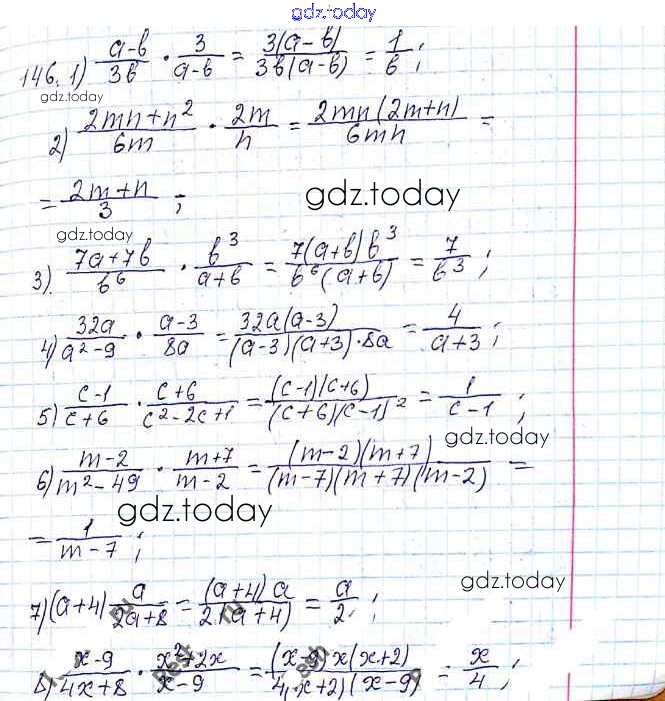 gdz.today
146. 1) (a-в)/(3в) · 3/(a-в) = 3(a-в)/(3в(a-в)) = 1/в ;
gdz.today
2) (2mn+n²)/(6m) · 2m/n = 2mn(2m+n)/(6mn) =
= (2m+n)/3 ;
gdz.today
gdz.today
3) (7a+7в)/в⁶ · в³/(a+в) = 7(a+в)в³/(в⁶(a+в)) = 7/в³ ;
4) 32a/(a²-9) · (a-3)/(8a) = 32a(a-3)/((a-3)(a+3)·8a) = 4/(a+3) ;
5) (c-1)/(c+6) · (c+6)/(c²-2c+1) = (c-1)(c+6)/((c+6)(c-1)²) = 1/(c-1) ;
gdz.today
6) (m-2)/(m²-49) · (m+7)/(m-2) = (m-2)(m+7)/((m-7)(m+7)(m-2)) =
gdz.today
= 1/(m-7) ;
gdz.today
7) (a+4) a/(2a+8) = (a+4)a/(2(a+4)) = a/2 ;
8) (x-9)/(4x+8) · (x²+2x)/(x-9) = (x-9)x(x+2)/(4(x+2)(x-9)) = x/4 ;